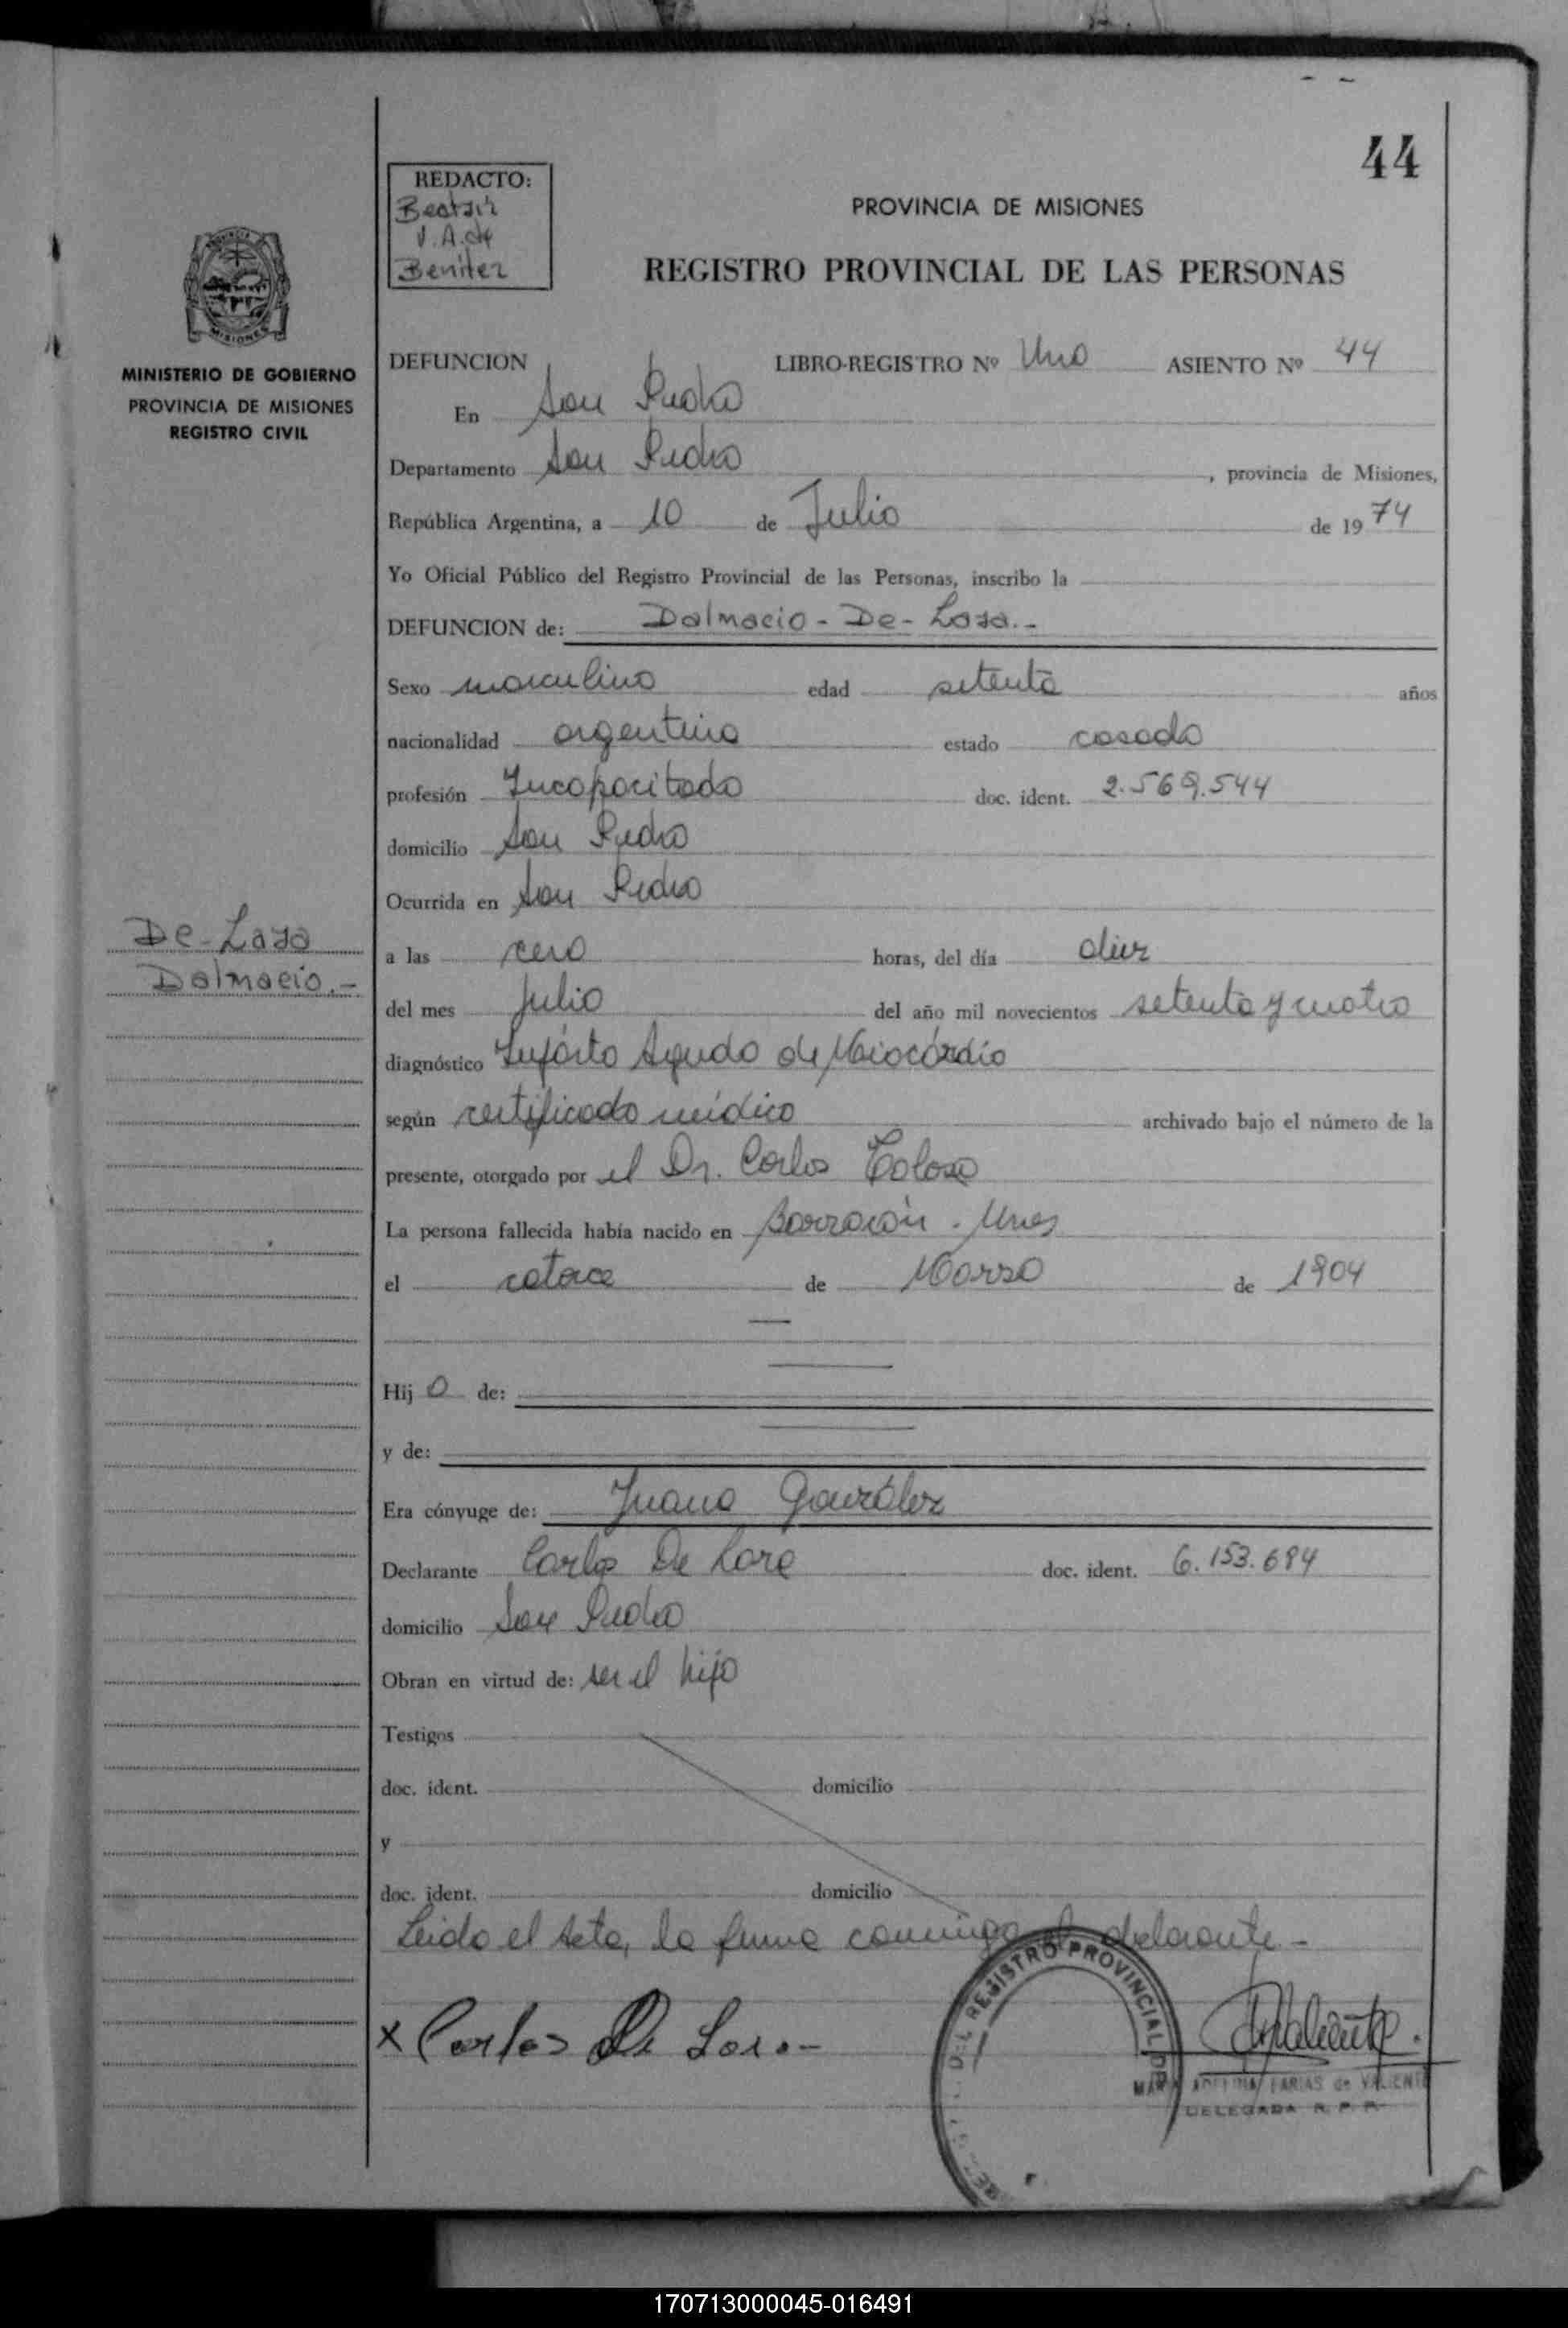 44
REDACTO:
Beatriz
V. A. de
Benitez
PROVINCIA DE MISIONES
REGISTRO PROVINCIAL DE LAS PERSONAS
MISIONES
MINISTERIO DE GOBIERNO
PROVINCIA DE MISIONES
REGISTRO CIVIL
DEFUNCION LIBRO-REGISTRO Nº Uno ASIENTO Nº 44
En San Pedro
Departamento San Pedro, provincia de Misiones,
República Argentina, a 10 de Julio de 1974
Yo Oficial Público del Registro Provincial de las Personas, inscribo la
DEFUNCION de: Dalmacio - De -
Sexo masculino edad setenta años
nacionalidad argentino estado casado
profesión Incapacitado doc. ident. 2.569.544
domicilio San Pedro
Ocurrida en San Pedro
De -
Dalmacio.-
a las cero horas, del día diez
del mes julio del año mil novecientos setenta y cuatro
diagnóstico Infarto Agudo de Miocardio
según certificado médico archivado bajo el número de la
presente, otorgado por el Dr. Carlos Tolosa
La persona fallecida había nacido en Barracón - Mnes
el catorce de Marzo de 1904
Hijo de:
y de:
Era cónyuge de: Juana González
Declarante Carlos De doc. ident. 6.153.684
domicilio San Pedro
Obran en virtud de: ser el hijo
Testigos
doc. ident. domicilio
y
doc. ident. domicilio
Leido el Acta, la firma conmigo el declarante -
x Carlos De
DEL REGISTRO PROVINCIAL DE
MARIA ADELINA FARIAS de VALIENTE
DELEGADA R. P. P.
170713000045-016491